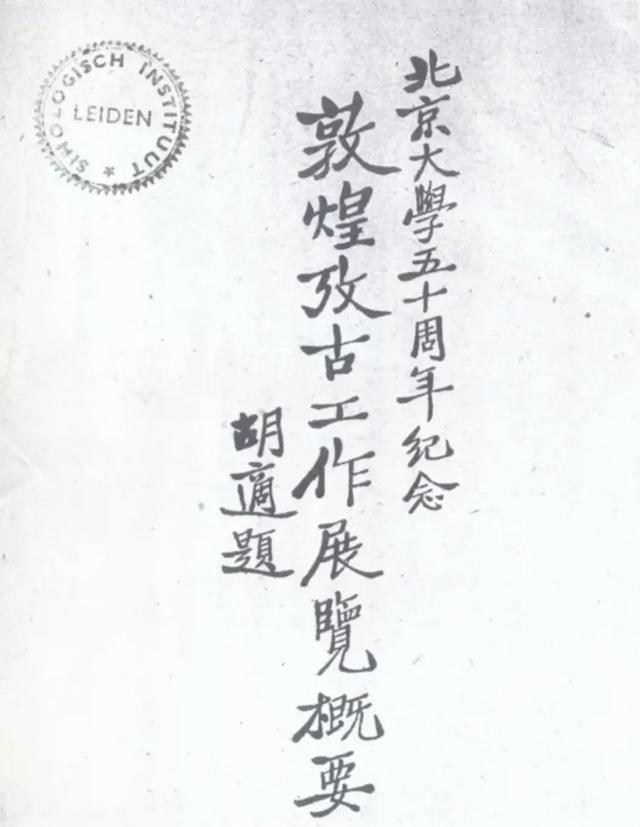 北京大學五十周年纪念
敦煌攷古工作展覽概要
胡適題
SINOLOGISCH INSTITUUT
LEIDEN